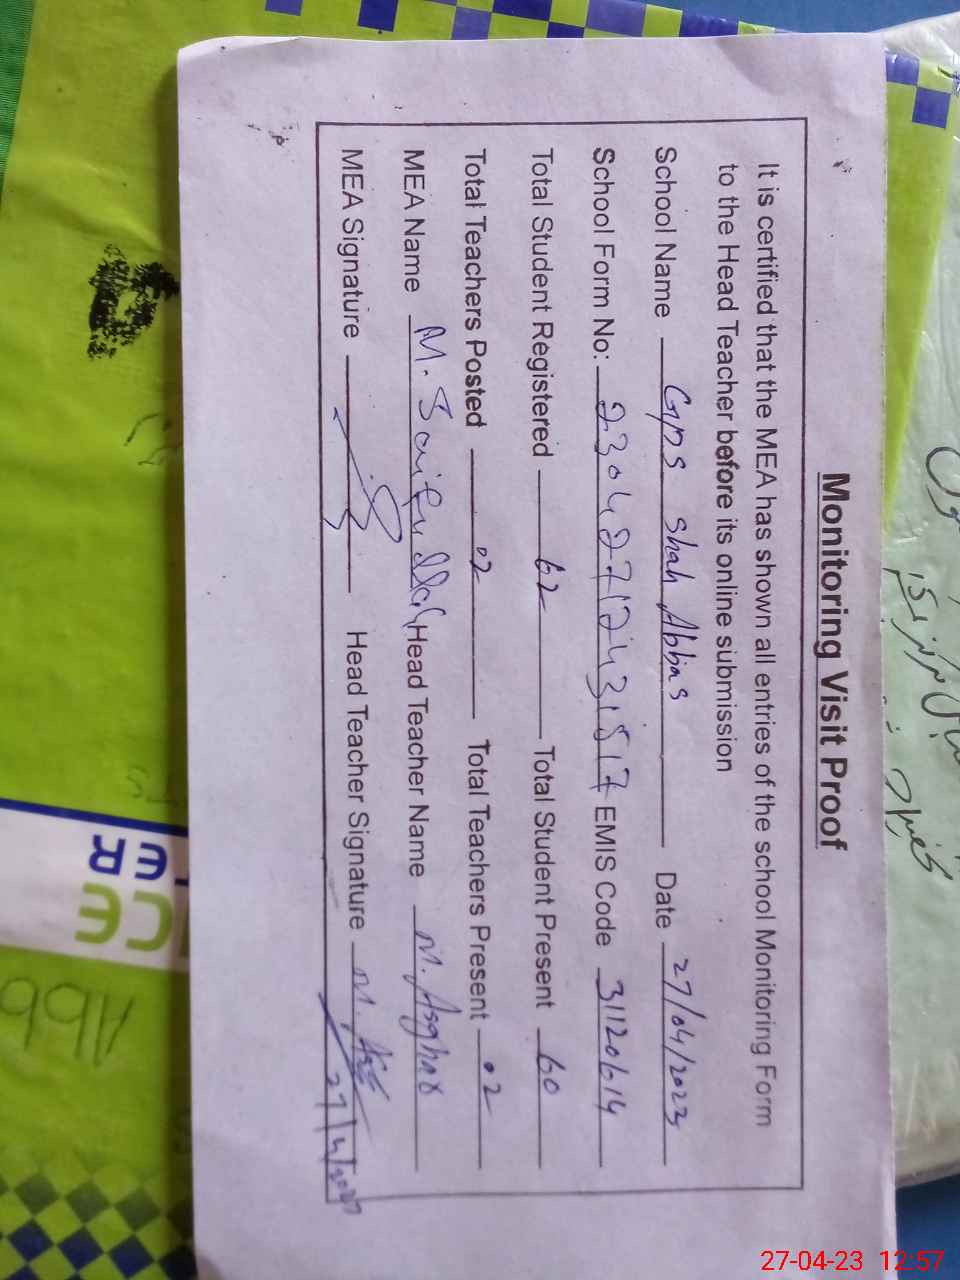 Monitoring Visit Proof
It is certified that the MEA has shown all entries of the school Monitoring Form
to the Head Teacher before its online submission
School Name Gps Shah Abbas Date 27/04/2023
School Form No: EMIS Code 31120614
Total Student Registered 62 Total Student Present 60
Total Teachers Posted 02 Total Teachers Present 02
MEA Name M. Head Teacher Name M. Asghar
MEA Signature Head Teacher Signature M.
CE
ER
Abb
27-04-23 12:57